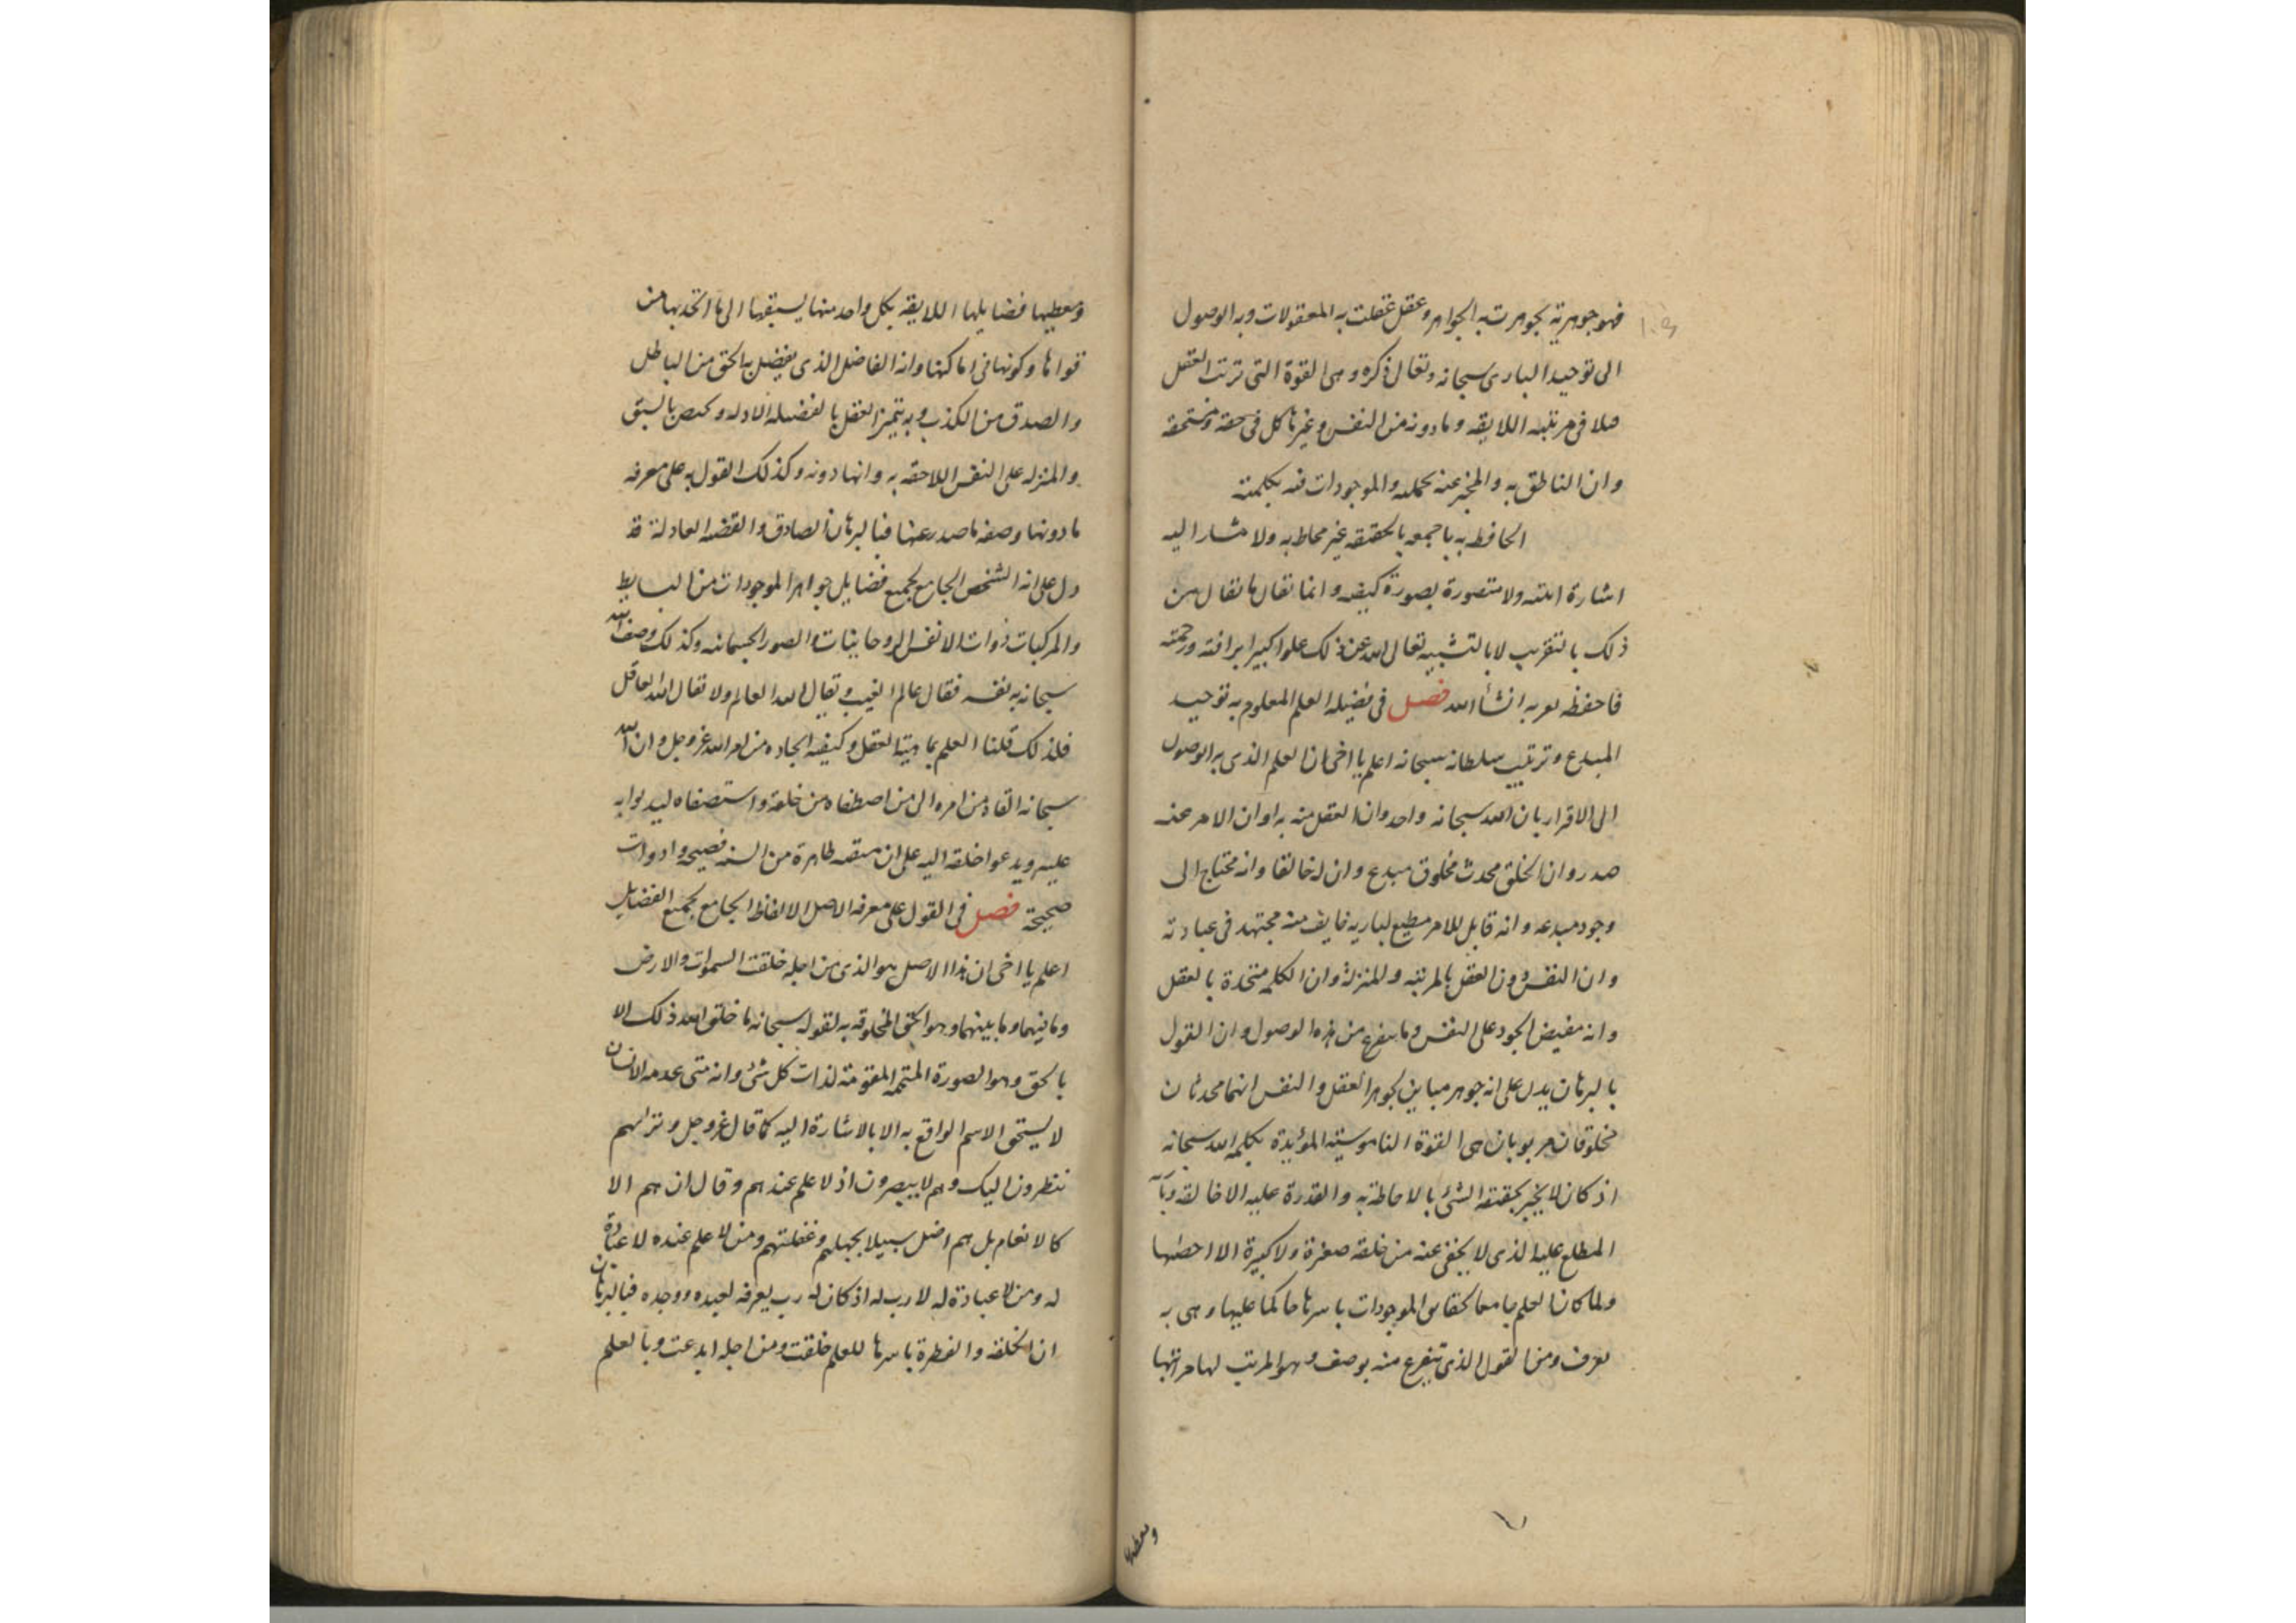 فهو جوهرية تجوهرت به الجواهر وعقل عقلت به المعقولات وبه الوصول
الى توحيد البارى سبحانه وتعالى ذكره وهى القوة التى ترتب العقل
فى مرتبته اللايقه وما دونه من النفس وغيرها كل فى حقه ومستحقه
وان الناطق به والمخبر عنه بجملته والموجودات فيه بكلمته
الحافظ به باجمعه بالحقيقه غير محاط به ولا مشار اليه
اشارة ولا متصورة بصورة كيفيه وانما يقال ما يقال من
ذلك بالتقريب لا بالتشبيه تعالى الله عن ذلك علوا كبيرا برافته ورحمته
فاحفظه انشأ الله فصل فى فضيله العلم المعلوم به توحيد
المبدع وترتيب سلطانه سبحانه اعلم يا اخى ان العلم الذى به الوصول
الى الاقرار بان الله سبحانه واحد وان العقل منه بدا وان الامر عنه
صدر وان الخلق محدث مخلوق مبدع وان له خالقا وانه محتاج الى
وجود مبدعه وانه قابل للامر مطيع لباريه خايف منه مجتهد فى عبادته
وان النفس دون العقل بالمرتبه والمنزلة وان الكلمه متحدة بالعقل
وانه مفيض الجود على النفس وما يتفرع من هذه الوصول وان القول
بالبرهان يدل على انه جوهر مباين لجوهر العقل والنفس انهما محدثان
مخلوقان مربوبان هى القوة الناموسيته المؤيدة بكلمه الله سبحانه
اذ كان لا يخبر بحقيقه الشئ بالاحاطة به والقدرة عليه الا خالقه
المطلع عليه الذى لا يخفى عنه من خلقه صغيرة ولا كبيرة الا احصيها
ولما كان العلم جامعا لحقايق الموجودات باسرها حاكما عليها وهى به
تعرف ومن القول الذى يتفرع منه يوصف وهو المرتب لها مراتبها
ومعطيها
ومعطيها فضايلها اللايقه بكل واحد منها يسبقها الى ما اتحد بها من
قواها وكونها فى اماكنها وانه الفاضل الذى يفضل به الحق من الباطل
والصدق من الكذب وبه يتميز العقل بالفضيله الاوله وتخص بالسبق
والمنزله على النفس اللاحقه به وانها دونه وكذلك القول به على معرفه
ما دونها وصفه ما صدر عنها فبالبرهان الصادق والقضيه العادلة قد
دل على انه الشخص الجامع لجميع فضايل جواهر الموجودات من البسايط
والمركبات ذوات الانفس الروحانيات والصور الجسمانيه وكذلك وصف الله
سبحانه به نفسه فقال عالم الغيب ويقال الله العالم ولا يقال الله العاقل
فلذلك قلنا العلم بماهية العقل وكيفيه ايجاده من امر الله عز وجل وان الله
سبحانه القاه من امره الى من اصطفاه من خلقه واستصفاه ليدلوا به
عليه ويدعوا خلقه اليه على ان طاهرة من السنه فصيحه وادوات
صحيحة فصل فى القول على معرفه الاصل الالفاظ الجامع لجميع الفضايل
اعلم يا اخى ان هذا الاصل هو الذى من اجله خلقت السموات والارض
وما فيهما وما بينهما وهو الحق المخلوقه به لقوله سبحانه ما خلق الله ذلك الا
بالحق وهو الصورة المتممه المقومته لذات كل شئ وانه متى عدمه الانسان
لا يستحق الاسم الواقع به الا بالاشارة اليه كما قال عز وجل وتراهم
ينظرون اليك وهم لا يبصرون اذ لا علم عندهم وقال ان هم الا
كالانعام بل هم اضل سبيلا بجهلهم وغفلتهم ومن لا علم عنده لا عبادة
له ومن لا عبادة له لا رب له اذ كان له رب يعرفه لعبده ووجده فبالبرهان
ان الخلقه والفطرة باسرها للعلم خلقت ومن اجله ابدعت وبالعلم